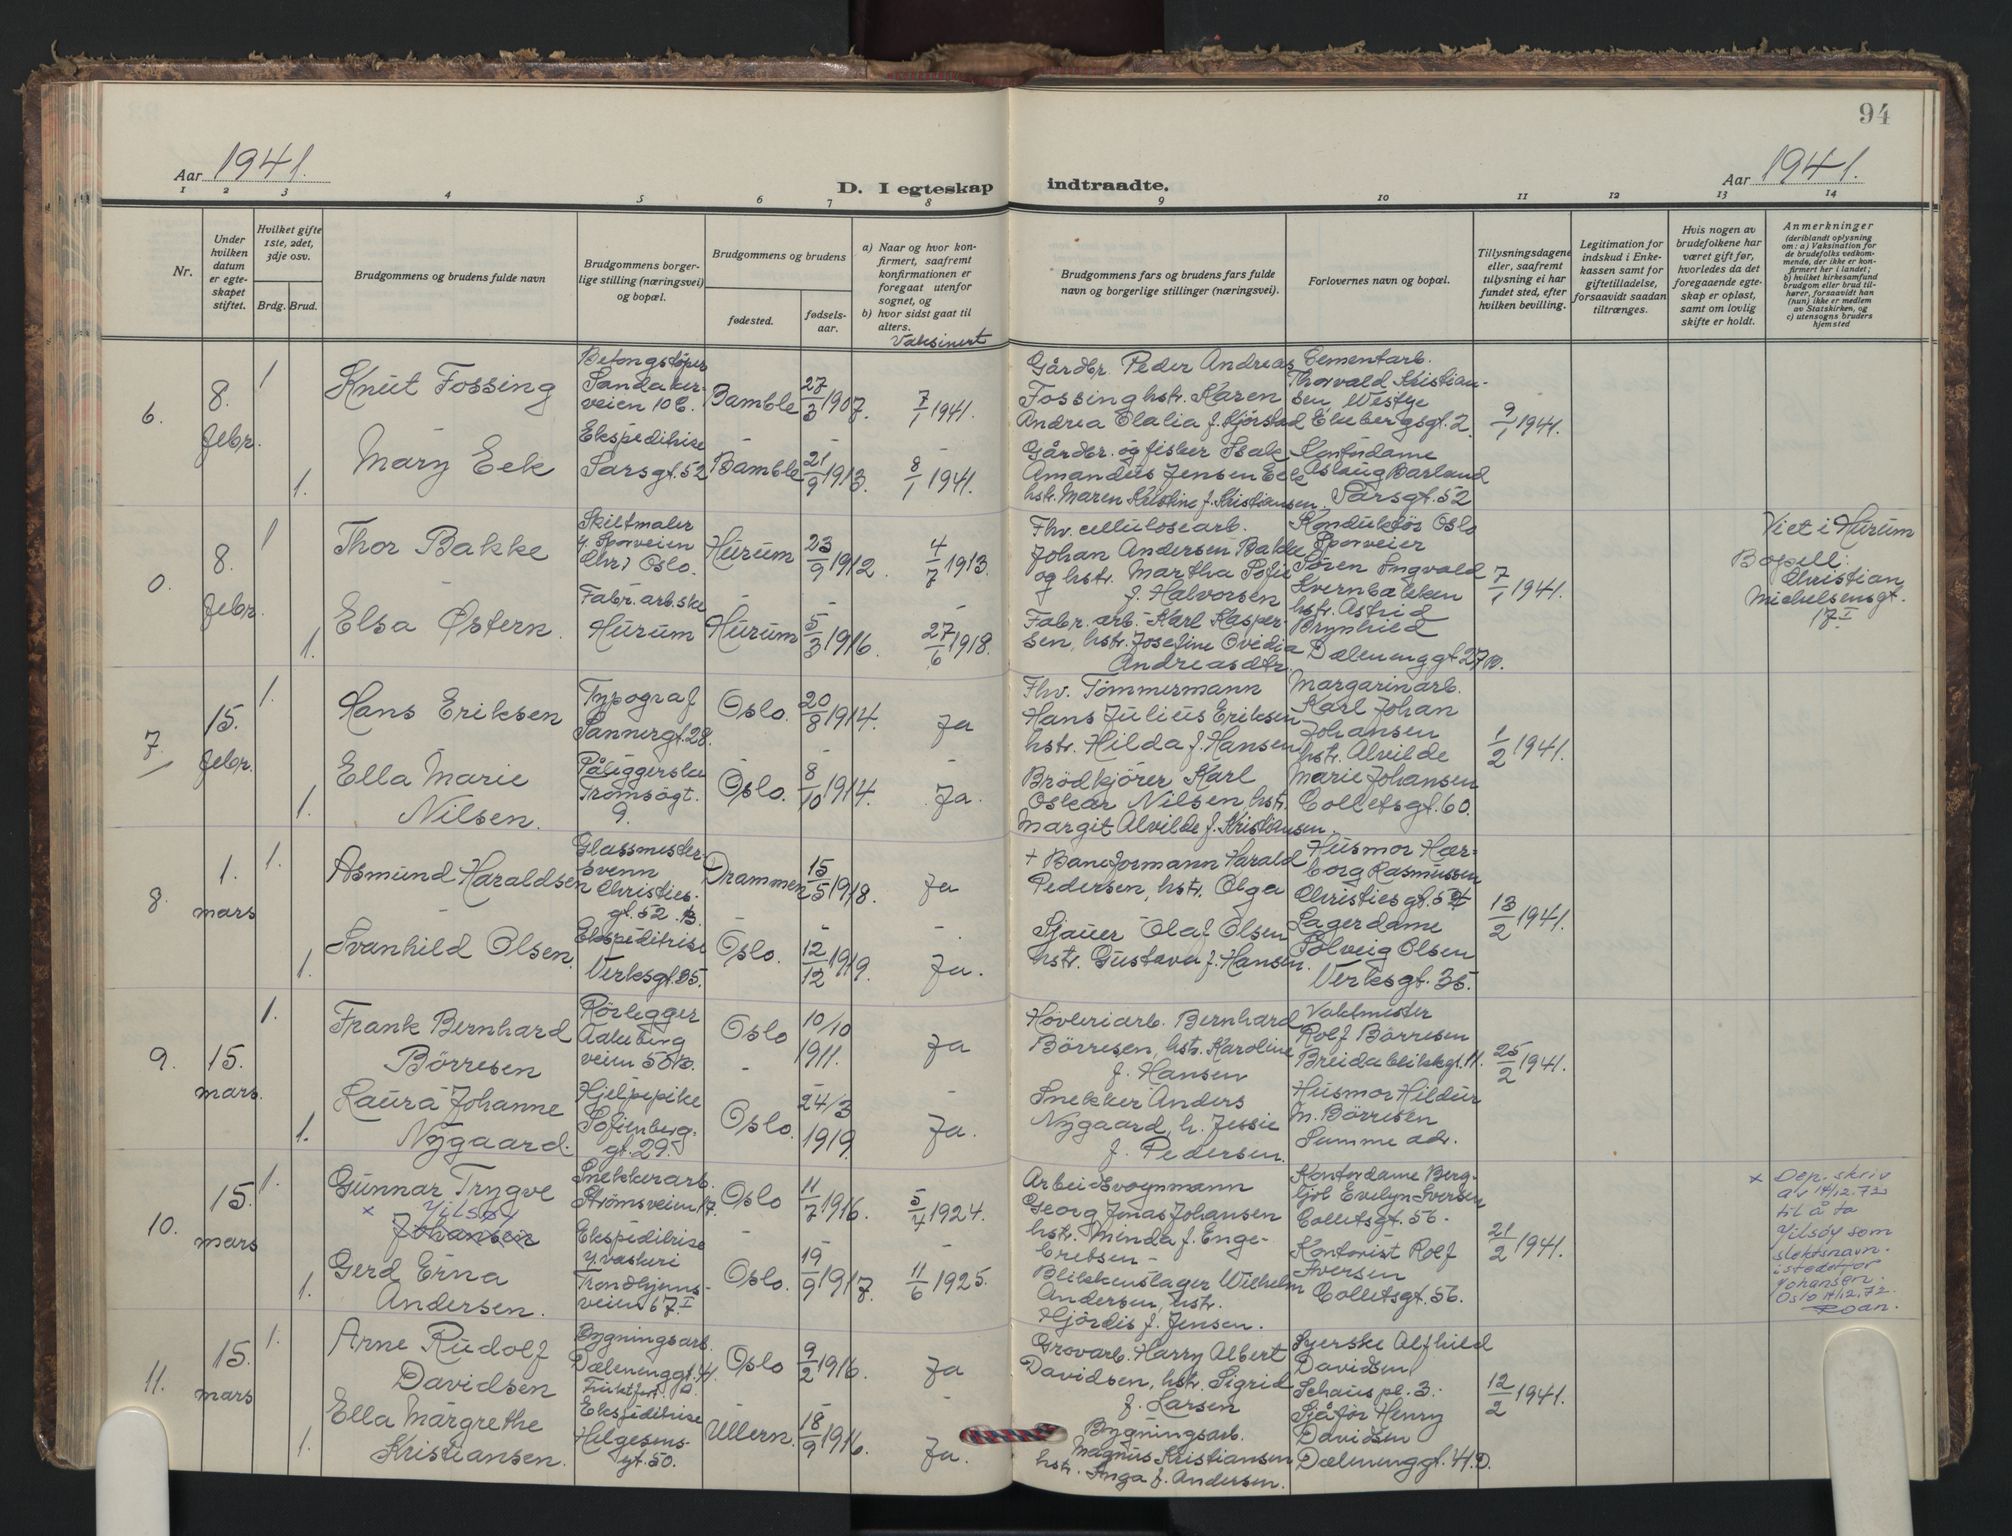 94
Aar 1941.
D. I egteskap indtraadte.
Aar 1941.
1 2 3 4 5 6 7 8 9 10 11 12 13 14
Nr.
Under
hvilken
datum
er egte-
skapet
stiftet.
Hvilket gifte
1ste, 2det,
3dje osv.
Brdg. Brud.
Brudgommens og brudens fulde navn
Brudgommens borger-
lige stilling (næringsvei)
og bopæl.
Brudgommens og brudens
fødested.
fødsels-
aar.
a) Naar og hvor kon-
firmert, saafremt
konfirmationen er
foregaat utenfor
sognet, og
b) hvor sidst gaat til
alters.
Vaksinert
Brudgommens fars og brudens fars fulde
navn og borgerlige stillinger (næringsvei).
Forlovernes navn og bopæl.
Tillysningsdagene
eller, saafremt
tillysning ei har
fundet sted, efter
hvilken bevilling.
Legitimation for
indskud i Enke-
kassen samt for
giftetilladelse,
forsaavidt saadan
tiltrænges.
Hvis nogen av
brudefolkene har
været gift før,
hvorledes da det
foregaaende egte-
skap er opløst,
samt om lovlig
skifte er holdt.
Anmerkninger
(deriblandt oplysning
om: a) Vaksination for
de brudefolks vedkom-
mende, der ikke er kon-
firmert her i landet;
b) hvilket kirkesamfund
brudgom eller brud til-
hører, forsaavidt han
(hun) ikke er medlem
av Statskirken, og
c) utensogns bruders
hjemsted
6.
8.
febr.
1
Knut Fossing
Betongstøper
Sandaker-
veien 10 C.
Bamble
27/3 1907.
7/1 1941.
Gårdbr. Peder Andreas
Fossing hstr. Karen
Andrea Elalia f. Hjørstad
Cementarb.
Thorvald Kristian-
sen, Westye
Ekebergsgt. 2.
9/1 1941.
1.
Mary Eek
Ekspeditrise
Sarsgt. 52
Bamble
21/9 1913.
8/1 1941.
Gårdbr. og fisker Isak
Amandus Jensen Eek
hstr. Maren Kristine f. Kristiansen
Kontordame
Aslaug Barland
Sarsgt. 52
0.
8.
febr.
1
Thor Bakke
Skiltmaler
v. Sporveien
Chr) Oslo.
Hurum
23/9 1912.
4/7 1913.
Fhv. cellulosearb.
Johan Andersen Bakke
og hstr. Martha Sofie
f. Halvorsen
Konduktør Oslo
Sporveier
Søren Ingvald
Kvernbakken
7/1 1941.
Viet i Hurum
Bopell:
Christian
Michelsensgt.
17 I
1.
Elsa Østern.
Fabr. arb.ske
Hurum
Hurum
5/3 1916.
27/6 1918.
Fabr. arb. Karl Kasper-
sen, hstr. Josefine Ovedia
Andreasdtr.
hstr. Astrid
Brynhild
Dælenenggt. 27 B.
7/
15.
febr.
1.
Hans Eriksen
Typograf
Sannergt. 28.
Oslo.
20/8 1914.
Ja
Fhv. Tømmermann
Hans Julius Eriksen
hstr. Hilda f. Hansen
Margarinarb.
Karl Johan
Johansen
hstr. Alvilde
1/2 1941.
1.
Ella Marie
Nilsen.
Påliggerske
Tromsøgt.
9.
Oslo.
8/10 1914.
Ja.
Brödkjører Karl
Oskar Nilsen, hstr.
Margit Alvilde f. Kristiansen.
Marie Johansen
Colletsgt. 60.
8.
1.
mars
1.
Asmund Haraldsen
Glassmester-
svenn
Christies-
gt. 52 B.
Drammen
15/5 1918.
Ja
+ Baneformann Harald
Pedersen, hstr. Olga
Husmor Hær-
borg Rasmussen
Christiesgt. 52
13/2 1941.
1.
Svanhild Olsen.
Ekspeditrise
Verksgt. 35.
Oslo.
12/12 1919.
Ja.
Sjauer Olaf Olsen
hstr. Gustava f. Hansen.
Lagerdame
Solveig Olsen
Verksgt. 35.
9.
15.
mars.
1.
Frank Bernhard
Børresen
Rørlegger
Aakeberg
veien 58 B.
Oslo
10/10
1911.
Ja
Høvleriarb. Bernhard
Børresen, hstr. Karoline
f. Hansen
Vaktmester
Rolf Børresen
Breidablikkgt. 11.
25/2 1941.
1.
Laura Johanne
Nygaard.
Hjelpepike
Sofienberg-
gt. 29.
Oslo.
24/3
1919.
Ja.
Snekker Anders
Nygaard, h. Jessie
f. Pedersen.
Husmor Hildur
M. Børresen
Samme adr.
10.
15.
mars
1.
Gunnar Trygve
× Yilsøy
Johansen
Snekkerarb.
Strømsveien 17.
Oslo
11/7 1916.
5/4 1924.
Arbeidsvognmann
Georg Jonas Johansen
hstr. Minda f. Enge-
bretsen -
Kontordame Berg-
ljot Evelyn Iversen
Colletsgt. 56.
21/2 1941.
× Dep. skriv
av 14/12.72
til å ta
Yilsøy som
slektsnavn
istedetfor
Johansen.
Oslo 14/12.72.
Roan.
1.
Gerd Erna
Andersen.
Ekspeditrise
v. vaskeri
Trondhjems-
veien 67 I
Oslo.
19/9 1917.
11/6 1925.
Blikkenslager Wilhelm
Andersen, hstr.
Hjördis f. Jensen.
Kontorist Rolf
Iversen
Colletsgt. 56.
11.
15.
mars
1.
Arne Rudolf
Davidsen
Bygningsarb.
Dælenenggt. 41.
Oslo
9/2 1916.
Ja
Grovarb. Harry Albert
Davidsen, hstr. Sigrid
f. Larsen
Syerske Alfhild
Davidsen
Schaus pl. 3.
12/2 1941.
1.
Ella Margrethe
Kristiansen.
Ekspeditrise
Helgesens-
gt. 50.
Ullern.
18/9 1916.
Ja.
Bygningsarb.
Magnus Kristiansen
hstr. Inga f. Andersen.
Sjåfør Henry
Davidsen
Dælenenggt. 41. D.